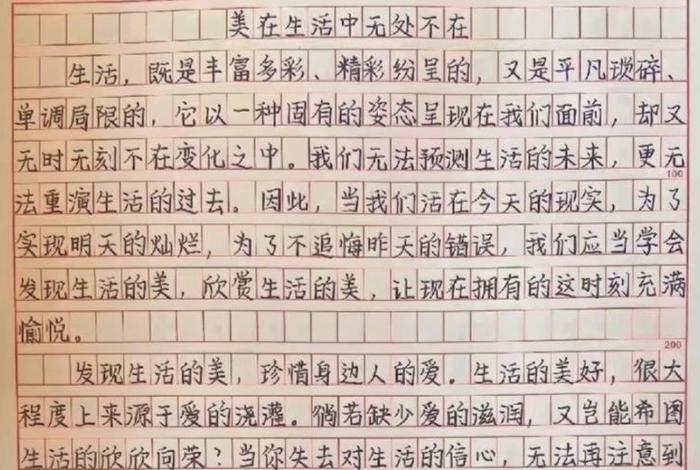 美在生活中无处不在
生活，既是丰富多彩、精彩纷呈的，又是平凡琐碎、
单调局限的，它以一种固有的姿态呈现在我们面前，却又
无时无刻不在变化之中。我们无法预测生活的未来，更无
100
法重演生活的过去。因此，当我们活在今天的现实，为了
实现明天的灿烂，为了不追悔昨天的错误，我们应当学会
发现生活的美，欣赏生活的美，让现在拥有的这时刻充满
愉悦。
200
发现生活的美，珍惜身边人的爱。生活的美好，很大
程度上来源于爱的浇灌。倘若缺少爱的滋润，又岂能希图
生活的欣欣向荣？当你失去对生活的信心，无法再注意到